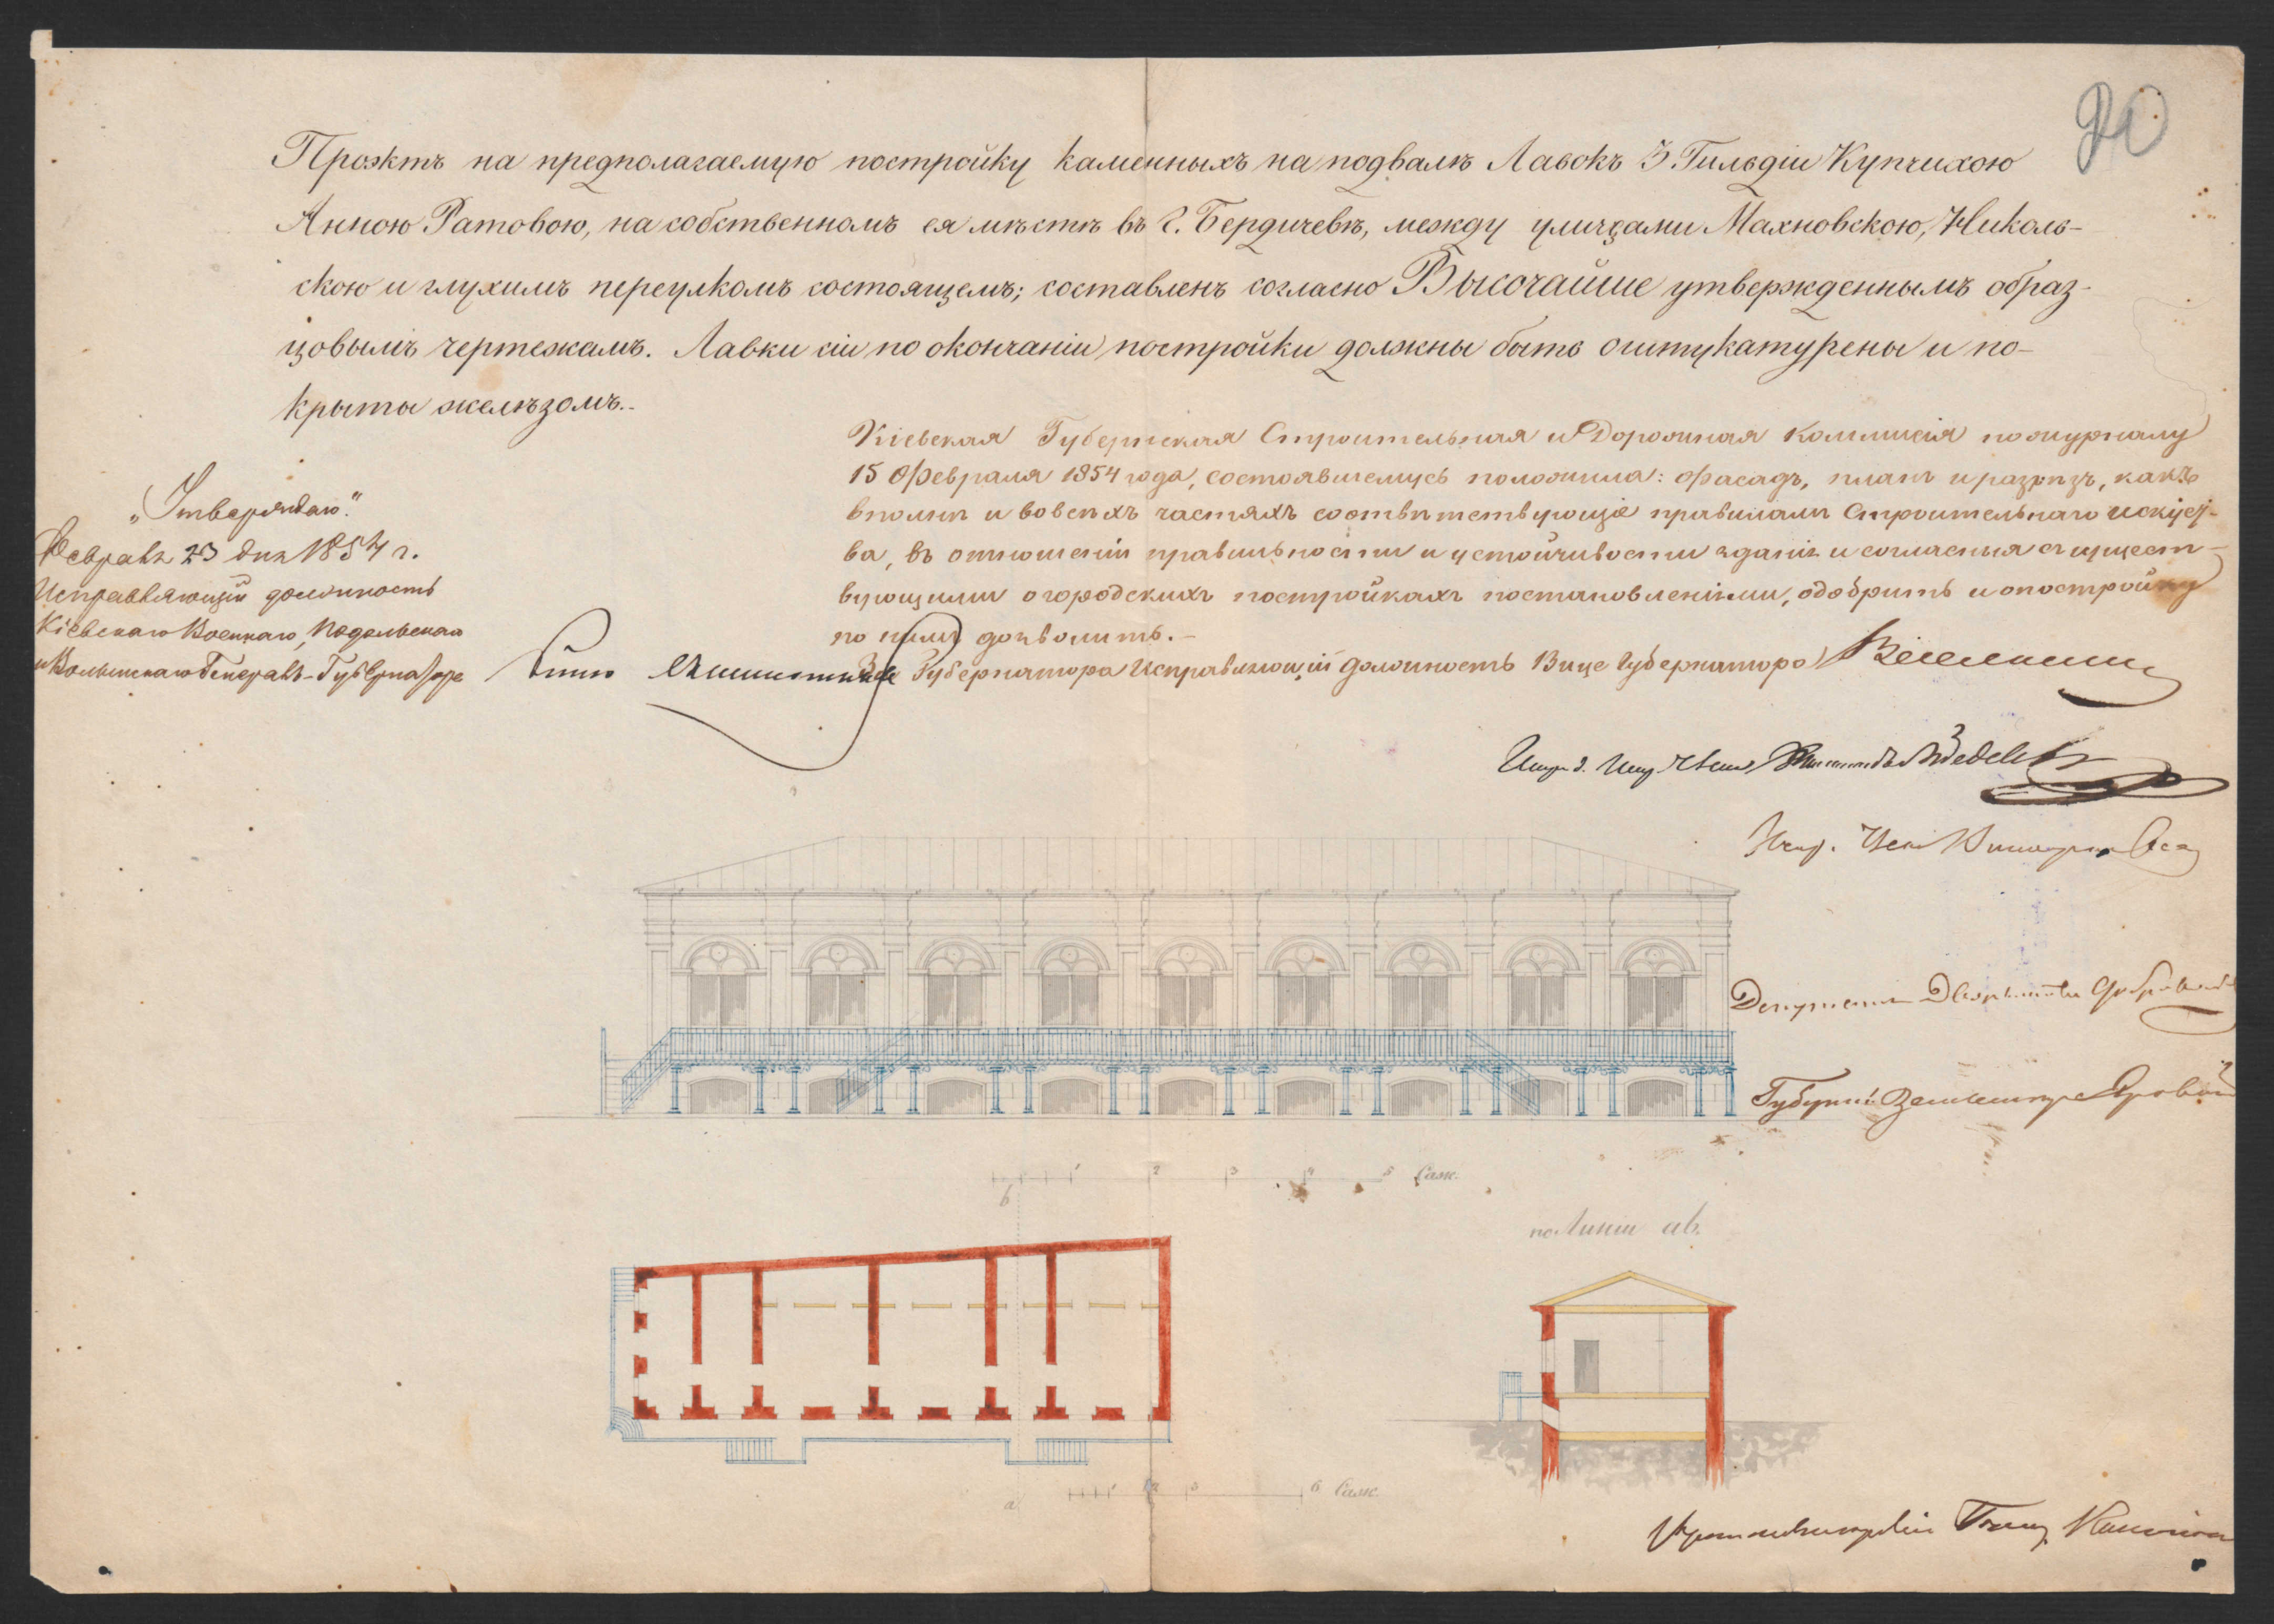 20
Проэктъ на предполагаемую постройку каменныхъ на подвалѣ Лавокъ 3. Гильдіи Купчихою
Анною Ратовою, на собственномъ ея мѣстѣ въ г. Бердичевѣ, между улицами Махновскою, Николь-
скою и глухимъ переулкомъ состоящемъ; составленъ согласно Высочайше утвержденнымъ образ-
цовымъ чертежамъ. Лавки сіи по окончаніи постройки должны быть оштукатурены и по-
крыты желѣзомъ.
Кіевская Губернская Строительная и Дорожная Коммисія по журналу
15 Февраля 1854 года, состоявшемусь положила: фасадъ, планъ и разрѣзъ, какъ
вполнѣ и во всѣхъ частяхъ соотвѣтствующіе правиламъ Строительнаго искуст-
ва, въ отношеніи правильности и устойчивости зданія и согласныя съ сущест-
вующими о городскихъ постройкахъ постановленіями, одобрить и постройку
по нимъ дозволить.
„Утверждаю“.
Февраля 23 дня 1854 г.
Исправляющій должность
Кіевскаго Военнаго, Подольскаго
и Волынскаго Генералъ-Губернатора
За Губернатора Исправляющій должность Вице Губернатора
Депутатъ Дворянства
Губернскій Землемѣръ
1 2 3 4 5 Саж.
b
по Линіи ab.
a
1 2 3 6 Саж.